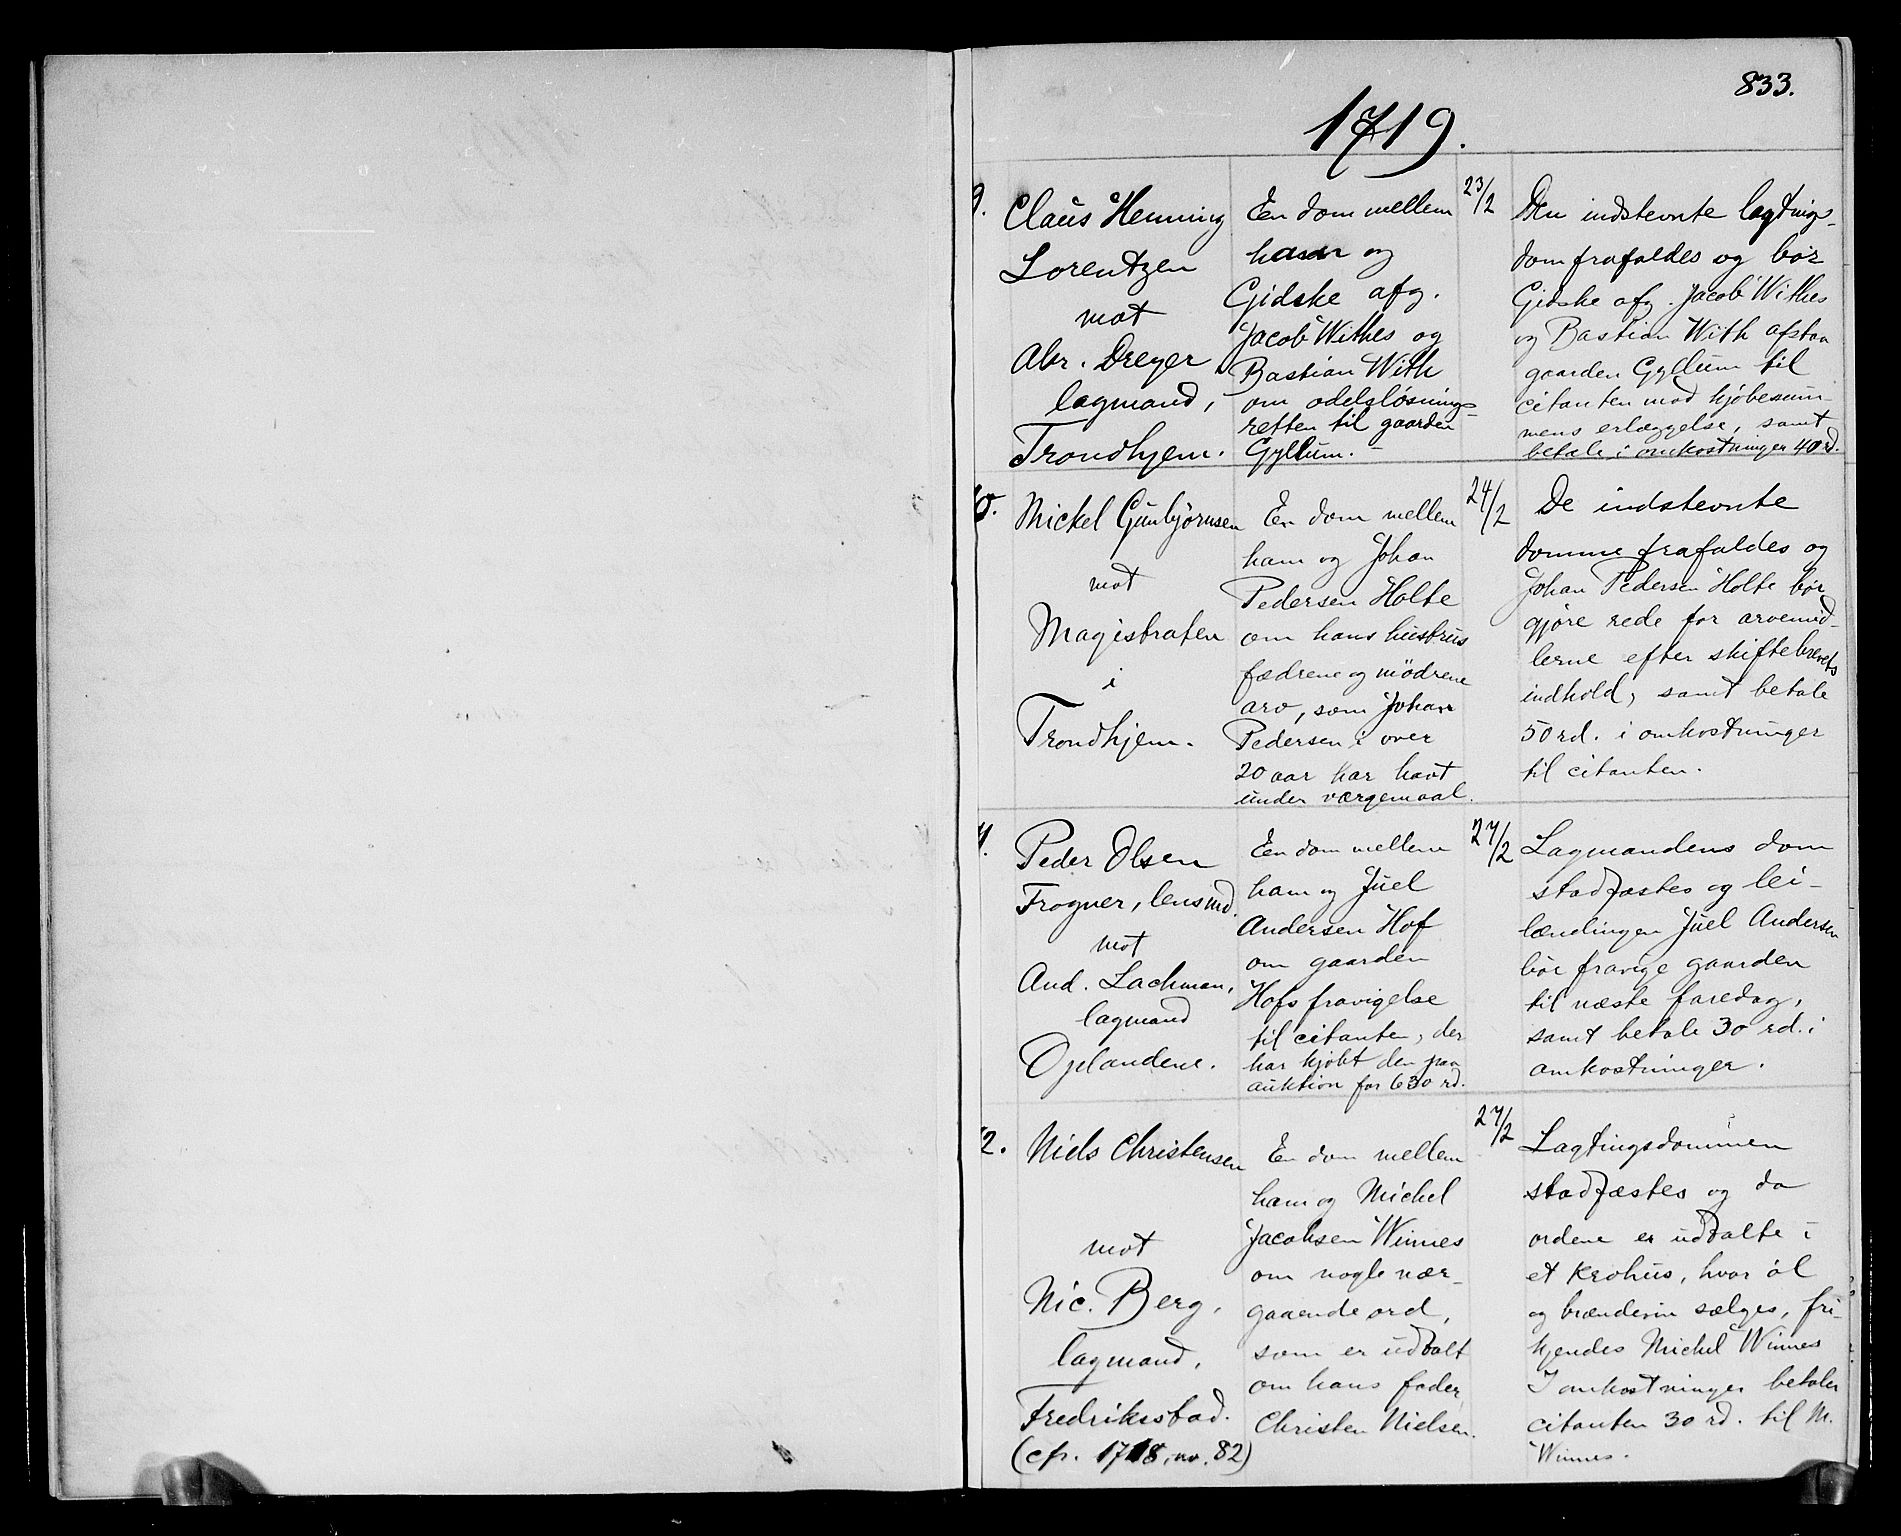 833.
1719.
9.
Claus Henning
Lorentzen
mot
Abr. Dreyer
lagmand,
Trondhjem.
En dom mellem
ham og
Gidske afg.
Jacob Withes og
Bastian With
om odelsløsnings-
retten til gaarden
Gyllum.
23/2
Den indstevnte lagtings-
dom frafaldes og bør
Gidske afg. Jacob Withes
og Bastian With afstaa
gaarden Gyllum til
citanten mod kjøbesum-
mens erlæggelse, samt
betale i omkostninger 40 rd.
10.
Mickel Gunbjørnsen
mot
Magistraten
i
Trondhjem.
En dom mellem
ham og Johan
Pedersen Holte
om hans hustrus
fædrene og mødrene
arv, som Johan
Pedersen i over
20 aar har havt
under værgemaal.
24/2
De indstevnte
domme frafaldes og
Johan Pedersen Holte bør
gjøre rede for arvemid-
lerne efter skiftebrevets
indhold, samt betale
50 rd. i omkostninger
til citanten.
11.
Peder Olsen
Frogner, lensmd.
mot
And. Lachman,
lagmand
Oplandene.
En dom mellem
ham og Juel
Andersen Hof
om gaarden
Hofs fravigelse
til citanten, der
har kjøbt den paa
auktion for 630 rd.
27/2
Lagmandens dom
stadfæstes og lei-
lændingen Juel Andersen
bør fravige gaarden
til næste faredag,
samt betale 30 rd. i
omkostninger.
12.
Niels Christensen
mot
Nic. Berg,
lagmand,
Fredriksstad.
(cfr. 1718, nr. 82)
En dom mellem
ham og Michel
Jacobsen Winnes
om nogle nær-
gaaende ord,
som er udtalt
om hans fader
Christen Nielsen.
27/2
Lagtingsdommen
stadfæstes og da
ordene er udtalte i
et krohus, hvor øl
og brændevin sælges, fri-
kjendes Michel Winnes
I omkostninger betaler
citanten 30 rd. til M.
Winnes.